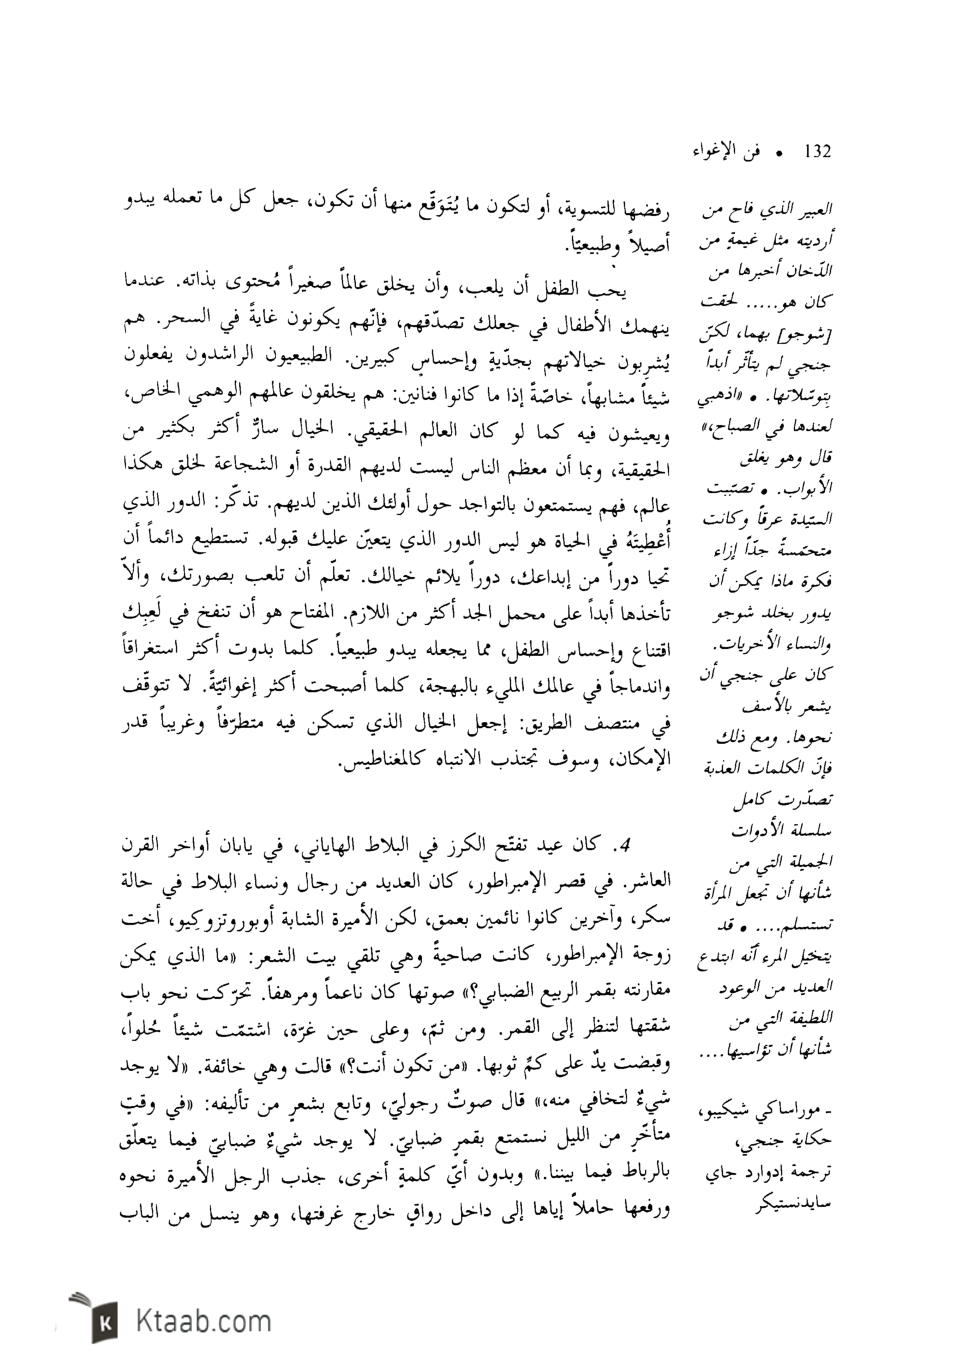 132 • فن الإغواء
رفضها للتسوية، أو لتكون ما يُتَوَقّع منها أن تكون، جعل كل ما تعمله يبدو
أصيلاً وطبيعيّاً.
يحب الطفل أن يلعب، وأن يخلق عالماً صغيراً مُحتوى بذاته. عندما
ينهمك الأطفال في جعلك تصدّقهم، فإنّهم يكونون غايةً في السحر. هم
يُشرِبون خيالاتهم بجديّةٍ وإحساسٍ كبيرين. الطبيعيون الراشدون يفعلون
شيئاً مشابهاً، خاصّةً إذا ما كانوا فنانين: هم يخلقون عالمهم الوهمي الخاص،
ويعيشون فيه كما لو كان العالم الحقيقي. الخيال سارٌّ أكثر بكثير من
الحقيقية، وبما أن معظم الناس ليست لديهم القدرة أو الشجاعة لخلق هكذا
عالم، فهم يستمتعون بالتواجد حول أولئك الذين لديهم. تذكّر: الدور الذي
أُعْطِيتَهُ في الحياة هو ليس الدور الذي يتعيّن عليك قبوله. تستطيع دائماً أن
تحيا دوراً من إبداعك، دوراً يلائم خيالك. تعلّم أن تلعب بصورتك، وألاّ
تأخذها أبداً على محمل الجد أكثر من اللازم. المفتاح هو أن تنفخ في لَعِبِك
اقتناع وإحساس الطفل، مما يجعله يبدو طبيعياً. كلما بدوت أكثر استغراقاً
واندماجاً في عالمك المليء بالبهجة، كلما أصبحت أكثر إغوائيّةً. لا تتوقّف
في منتصف الطريق: إجعل الخيال الذي تسكن فيه متطرّفاً وغريباً قدر
الإمكان، وسوف تجتذب الانتباه كالمغناطيس.
4. كان عيد تفتّح الكرز في البلاط الهاياني، في يابان أواخر القرن
العاشر. في قصر الإمبراطور، كان العديد من رجال ونساء البلاط في حالة
سكر، وآخرين كانوا نائمين بعمق، لكن الأميرة الشابة أوبوروتزوكِيو، أخت
زوجة الإمبراطور، كانت صاحيةً وهي تلقي بيت الشعر: «ما الذي يمكن
مقارنته بقمر الربيع الضبابي؟» صوتها كان ناعماً ومرهفاً. تحرّكت نحو باب
شقتها لتنظر إلى القمر. ومن ثمّ، وعلى حين غرّة، اشتمّت شيئاً حُلواً،
وقبضت يدٌ على كمِّ ثوبها. «من تكون أنت؟» قالت وهي خائفة. «لا يوجد
شيءٌ لتخافي منه،» قال صوتٌ رجوليّ، وتابع بشعرٍ من تأليفه: «في وقتٍ
متأخّرٍ من الليل نستمتع بقمرٍ ضبابيّ. لا يوجد شيءٌ ضبابيّ فيما يتعلّق
بالرباط فيما بيننا.» وبدون أيّ كلمةٍ أخرى، جذب الرجل الأميرة نحوه
ورفعها حاملاً إياها إلى داخل رواقٍ خارج غرفتها، وهو ينسل من الباب
العبير الذي فاح من
أرديته مثل غيمةٍ من
الدّخان أخبرها من
كان هو..... لحقت
[شوجو] بهما، لكنّ
جنجي لم يتأثّر أبداً
بتوسّلاتها. • «اذهبي
لعندها في الصباح،»
قال وهو يغلق
الأبواب. • تصبّبت
السّيّدة عرقاً وكانت
متحمّسةً جدّاً إزاء
فكرة ماذا يمكن أن
يدور بخلد شوجو
والنساء الأخريات.
كان على جنجي أن
يشعر بالأسف
نحوها. ومع ذلك
فإنّ الكلمات العذبة
تصدّرت كامل
سلسلة الأدوات
الجميلة التي من
شأنها أن تجعل المرأة
تستسلم.... • قد
يتخيّل المرء أنّه ابتدع
العديد من الوعود
اللطيفة التي من
شأنها أن تؤاسيها....
ـ موراساكي شيكيبو،
حكاية جنجي،
ترجمة إدوارد جاي
سايدنستيكر
Ktaab.com